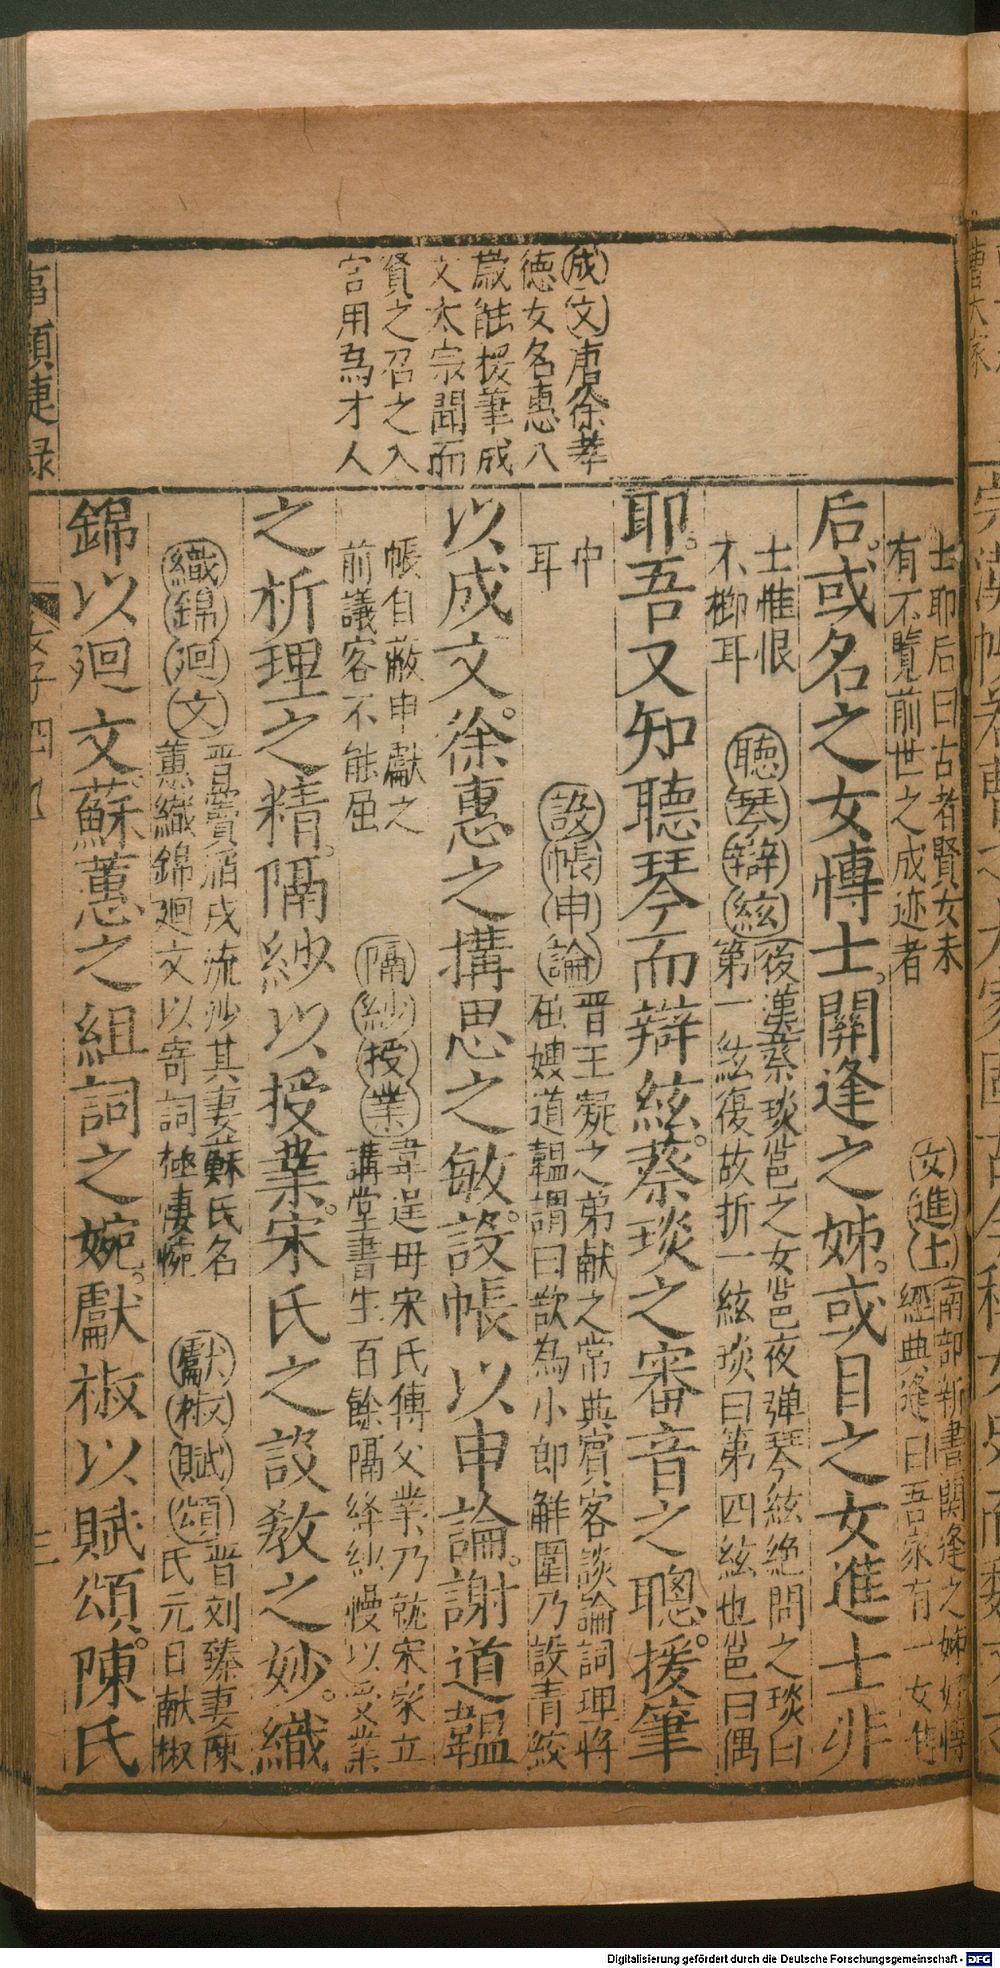 成文唐徐孝
德女名惠八
歲能援筆成
文太宗聞而
賢之召之入
宮用為才人
士耶后曰古者賢女未
有不覽前世之成迹者
女進士南部新書關逢之姊
經典逢曰吾家有一女
后或名之女博士關逢之姊或目之女進士非
士惟恨
不櫛耳
聽琴辯絃後漢蔡琰邕之女邕夜弹琴絃絶問之琰曰
第一絃復故折一絃琰曰第四絃也邕曰偶
耶吾又知聽琴而辯絃蔡琰之審音之聰援筆
中
耳
設帳申論晋王凝之弟献之常與賓客談論詞理将
屈嫂道韞謂曰欲為小郎解圍乃設青綾
以成文徐惠之搆思之敏設帳以申論謝道韞
帳自蔽申獻之
前議客不能屈
隔紗授業韋逞母宋氏傳父業乃就宋家立
講堂書生百餘隔絳紗幔以受業
之析理之精隔紗以授業宋氏之設教之妙織
織錦廻文晋竇滔戌流沙其妻蘇氏名
蕙織錦廻文以寄詞極凄惋
獻椒賦頌晋刘臻妻陳
氏元日献椒
錦以廻文蘇蕙之組詞之婉獻椒以賦頌陳氏
事類捷録
女子四
三
Digitalisierung gefördert durch die Deutsche Forschungsgemeinschaft - DFG